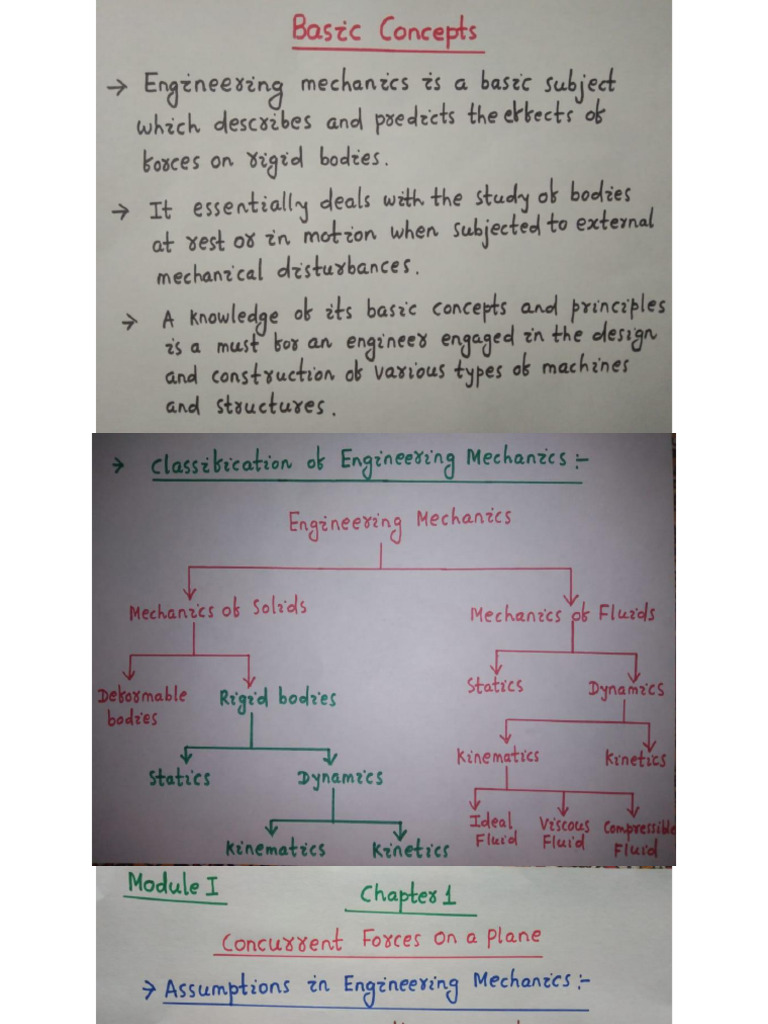 Basic Concepts
→ Engineering mechanics is a basic subject
which describes and predicts the effects of
forces on rigid bodies.
→ It essentially deals with the study of bodies
at rest or in motion when subjected to external
mechanical disturbances.
→ A knowledge of its basic concepts and principles
is a must for an engineer engaged in the design
and construction of various types of machines
and structures.
→ Classification of Engineering Mechanics:-
Engineering Mechanics
Mechanics of Solids
Mechanics of Fluids
Deformable
bodies
Rigid bodies
Statics
Dynamics
Statics
Dynamics
Kinematics
Kinetics
Kinematics
Kinetics
Ideal
Fluid
Viscous
Fluid
Compressible
Fluid
Module I
Chapter 1
Concurrent Forces on a plane
→ Assumptions in Engineering Mechanics:-